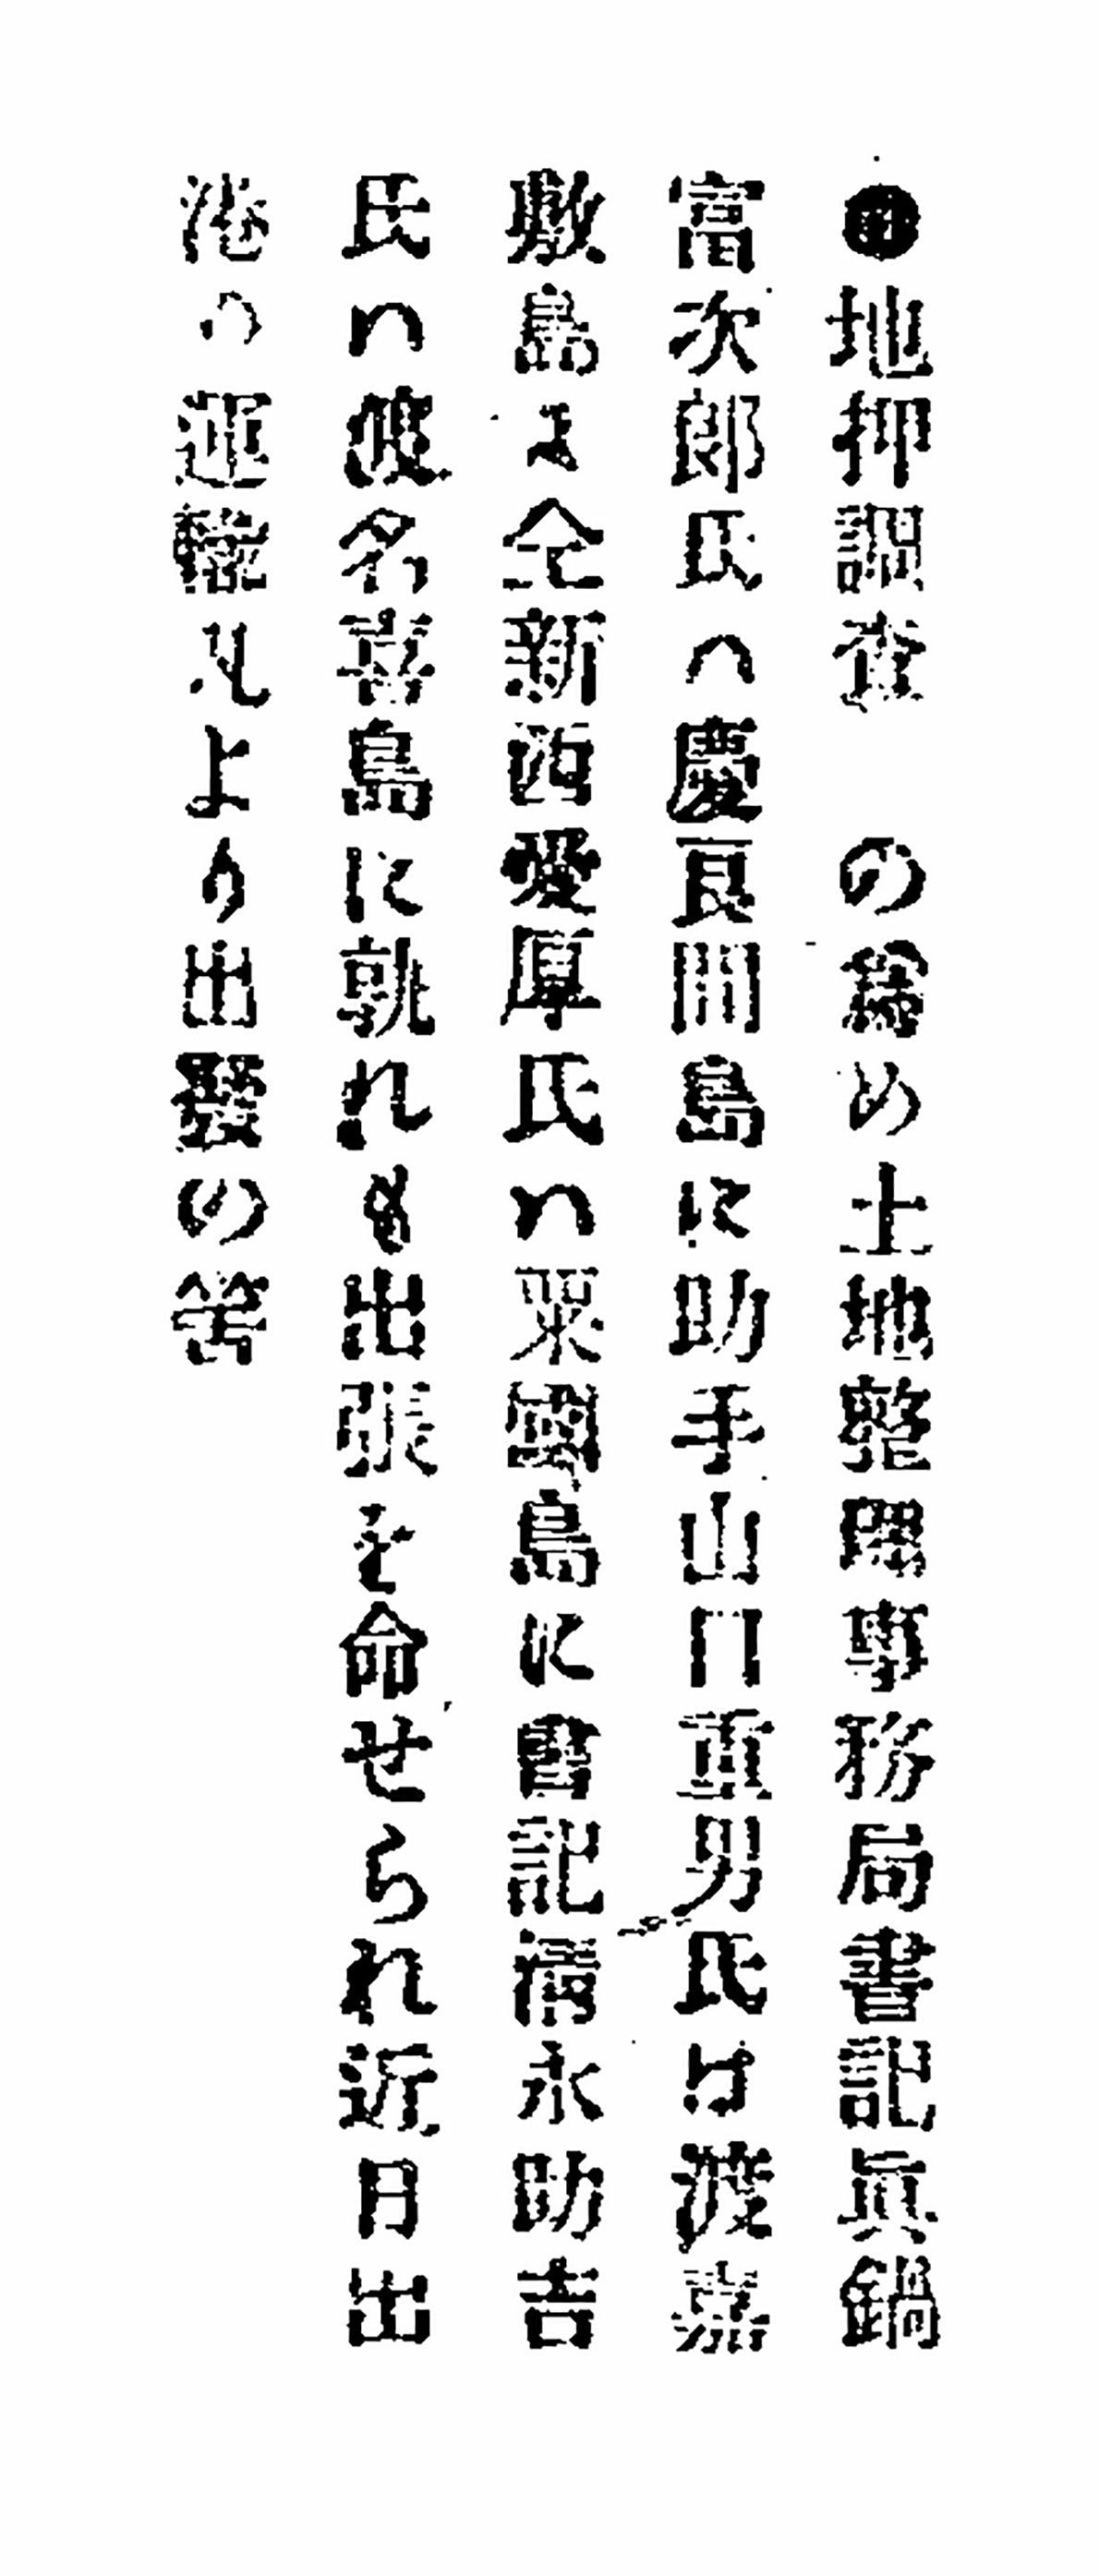 ●地押調査　の爲め土地整理事務局書記眞鍋
富次郎氏へ慶良間島に助手山口重男氏は渡嘉
敷島に仝新西愛厚氏ハ粟國島に書記清永助吉
氏ハ渡名喜島に孰れも出張を命せられ近日出
港の運輸丸より出發の筈